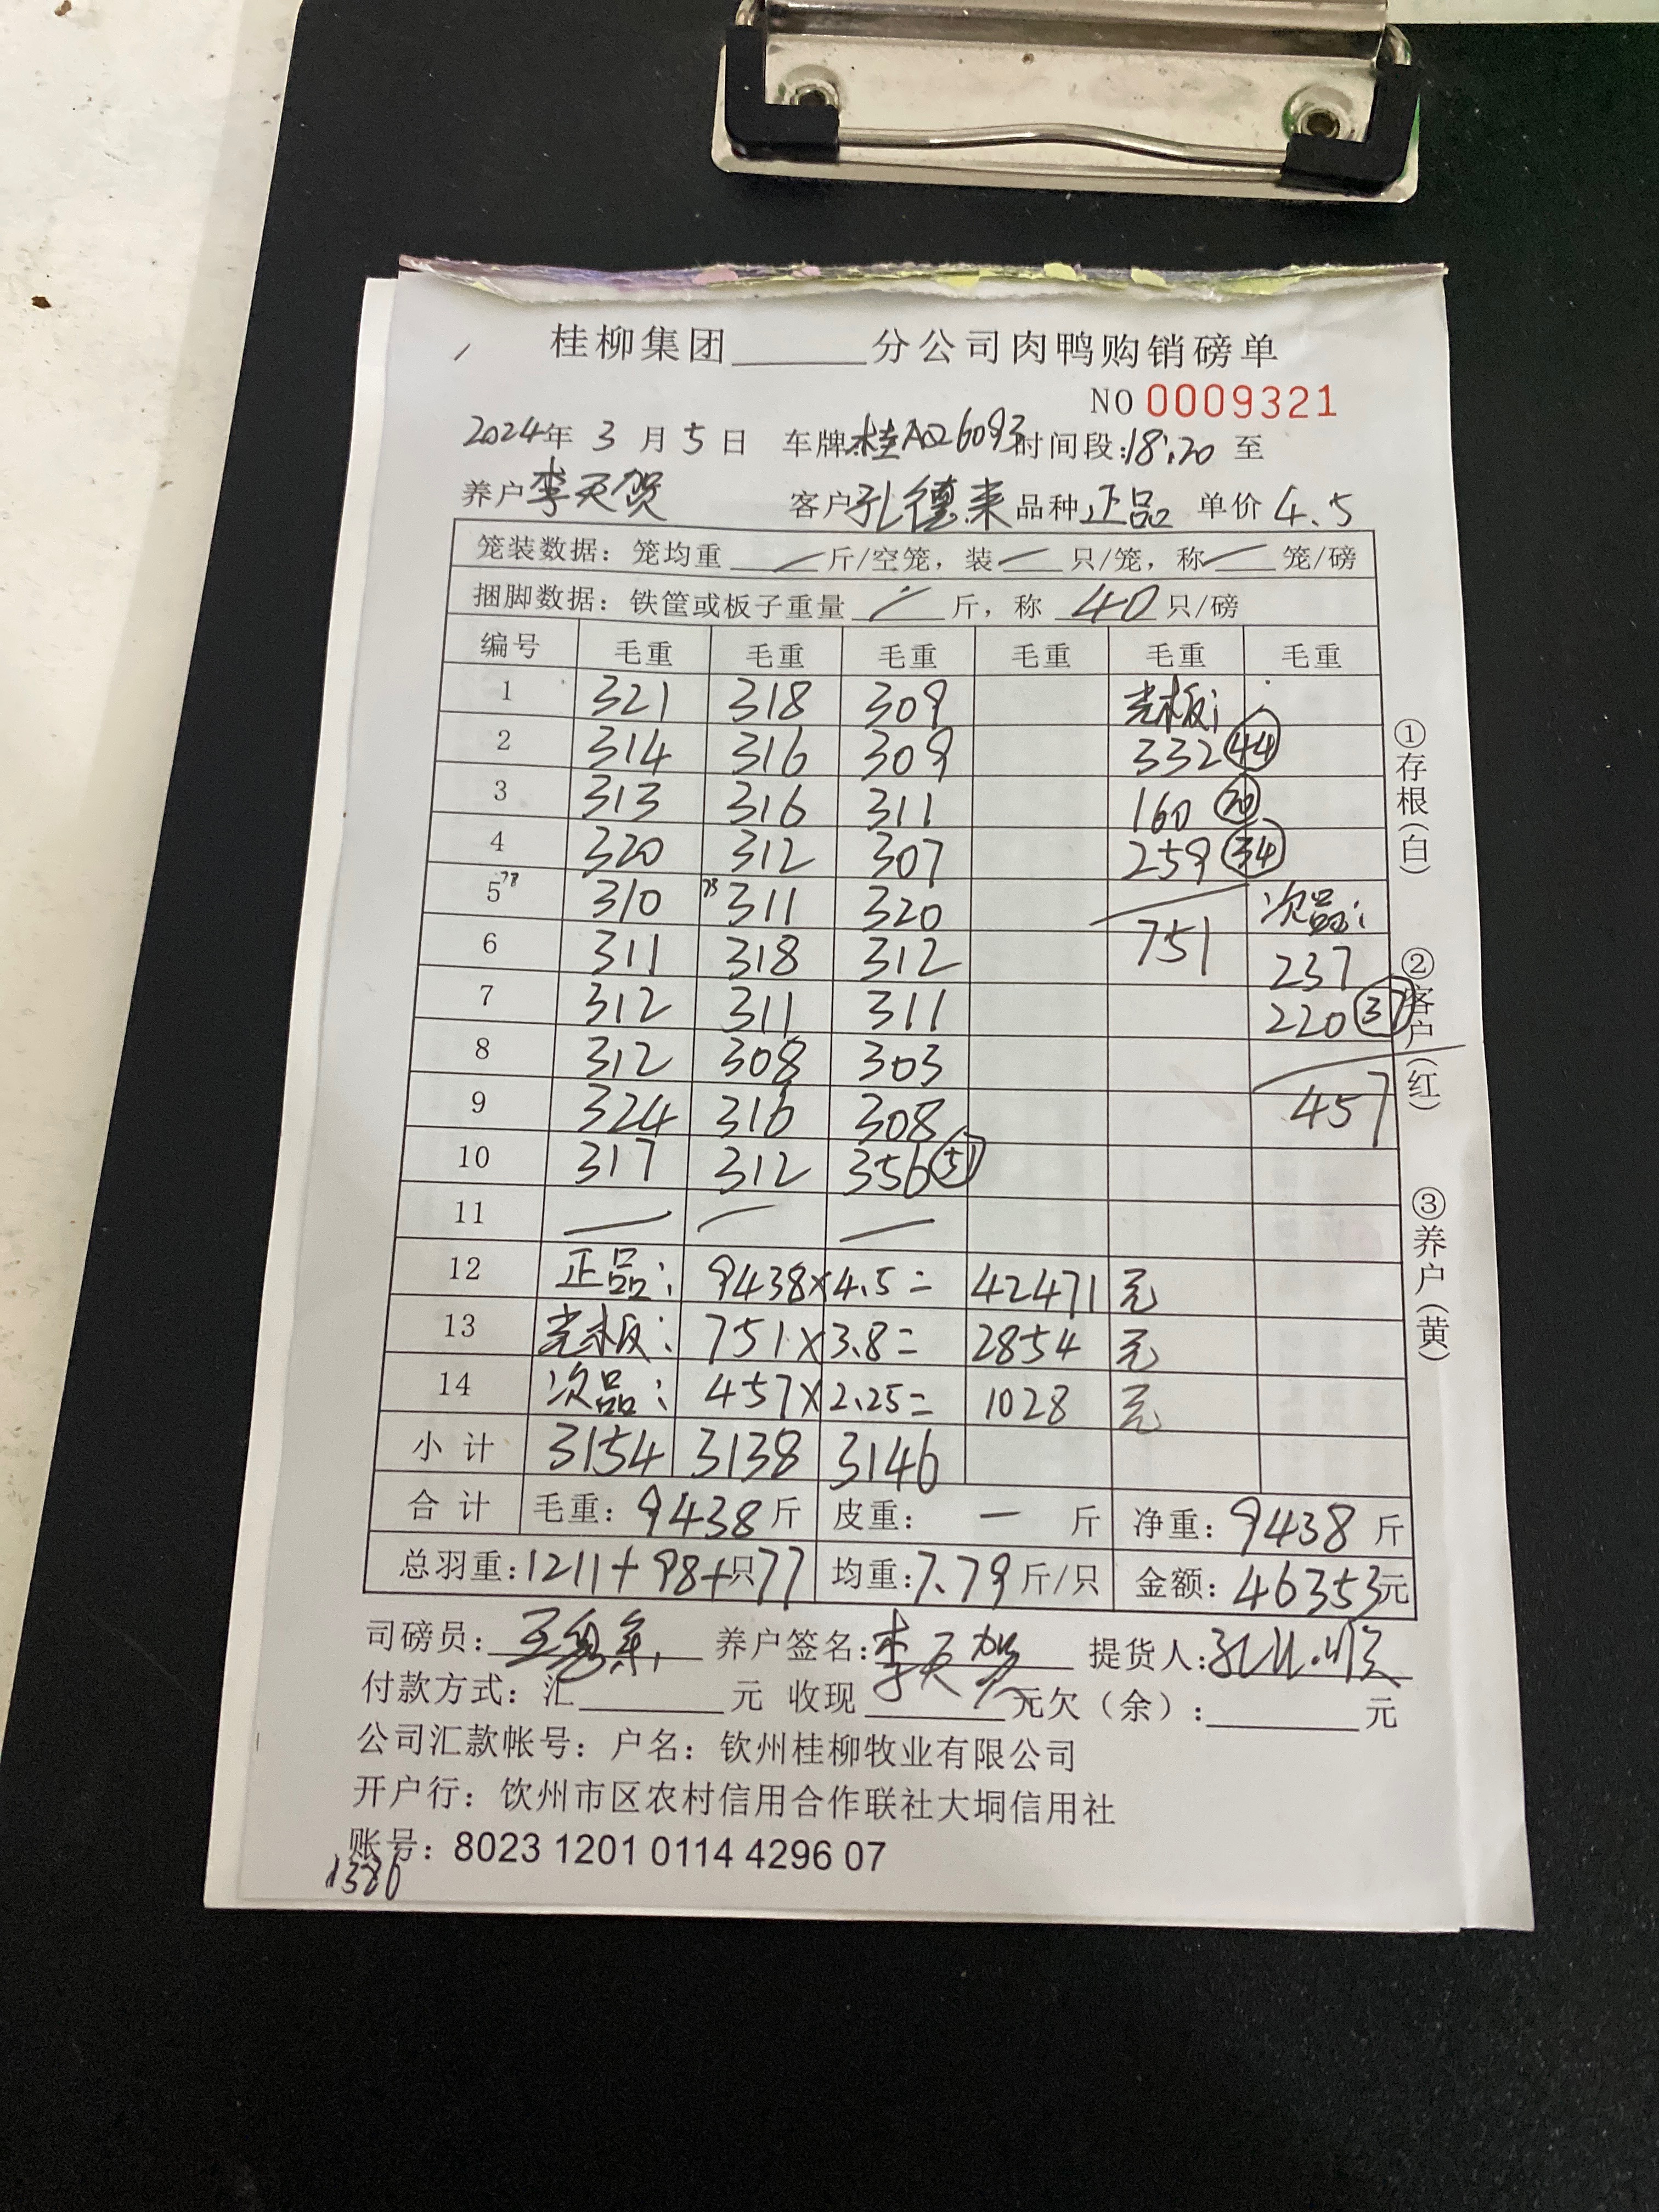 桂柳集团______分公司肉鸭购销磅单
NO 0009321
2024年 3 月 5 日 车牌:桂AQ6093 时间段:18:20 至
养户 李天贺 客户 孔德来 品种 正品 单价 4.5
笼装数据：笼均重 — 斤/空笼，装 — 只/笼，称 — 笼/磅
捆脚数据：铁筐或板子重量 — 斤，称 40 只/磅
编号 毛重 毛重 毛重 毛重 毛重 毛重
1 321 318 309 光板:
2 314 316 309 332 44
3 313 316 311 160 20
4 320 312 307 259 34
5 310 311 320 次品:
6 311 318 312 751 237
7 312 311 311 220 37
8 312 308 303
9 324 316 308 457
10 317 312 356 51
11 — — —
12 正品: 9438×4.5= 42471 元
13 光板: 751×3.8= 2854 元
14 次品: 457×2.25= 1028 元
小 计 3154 3138 3146
合 计 毛重: 9438 斤 皮重: — 斤 净重: 9438 斤
总羽重:1211+98+只77 均重:7.79 斤/只 金额: 46353元
①存根(白) ②客户(红) ③养户(黄)
司磅员: 养户签名:李天贺 提货人:
付款方式：汇______元 收现______元欠（余）:______元
公司汇款帐号：户名：钦州桂柳牧业有限公司
开户行：饮州市区农村信用合作联社大垌信用社
账号：8023 1201 0114 4296 07
1386